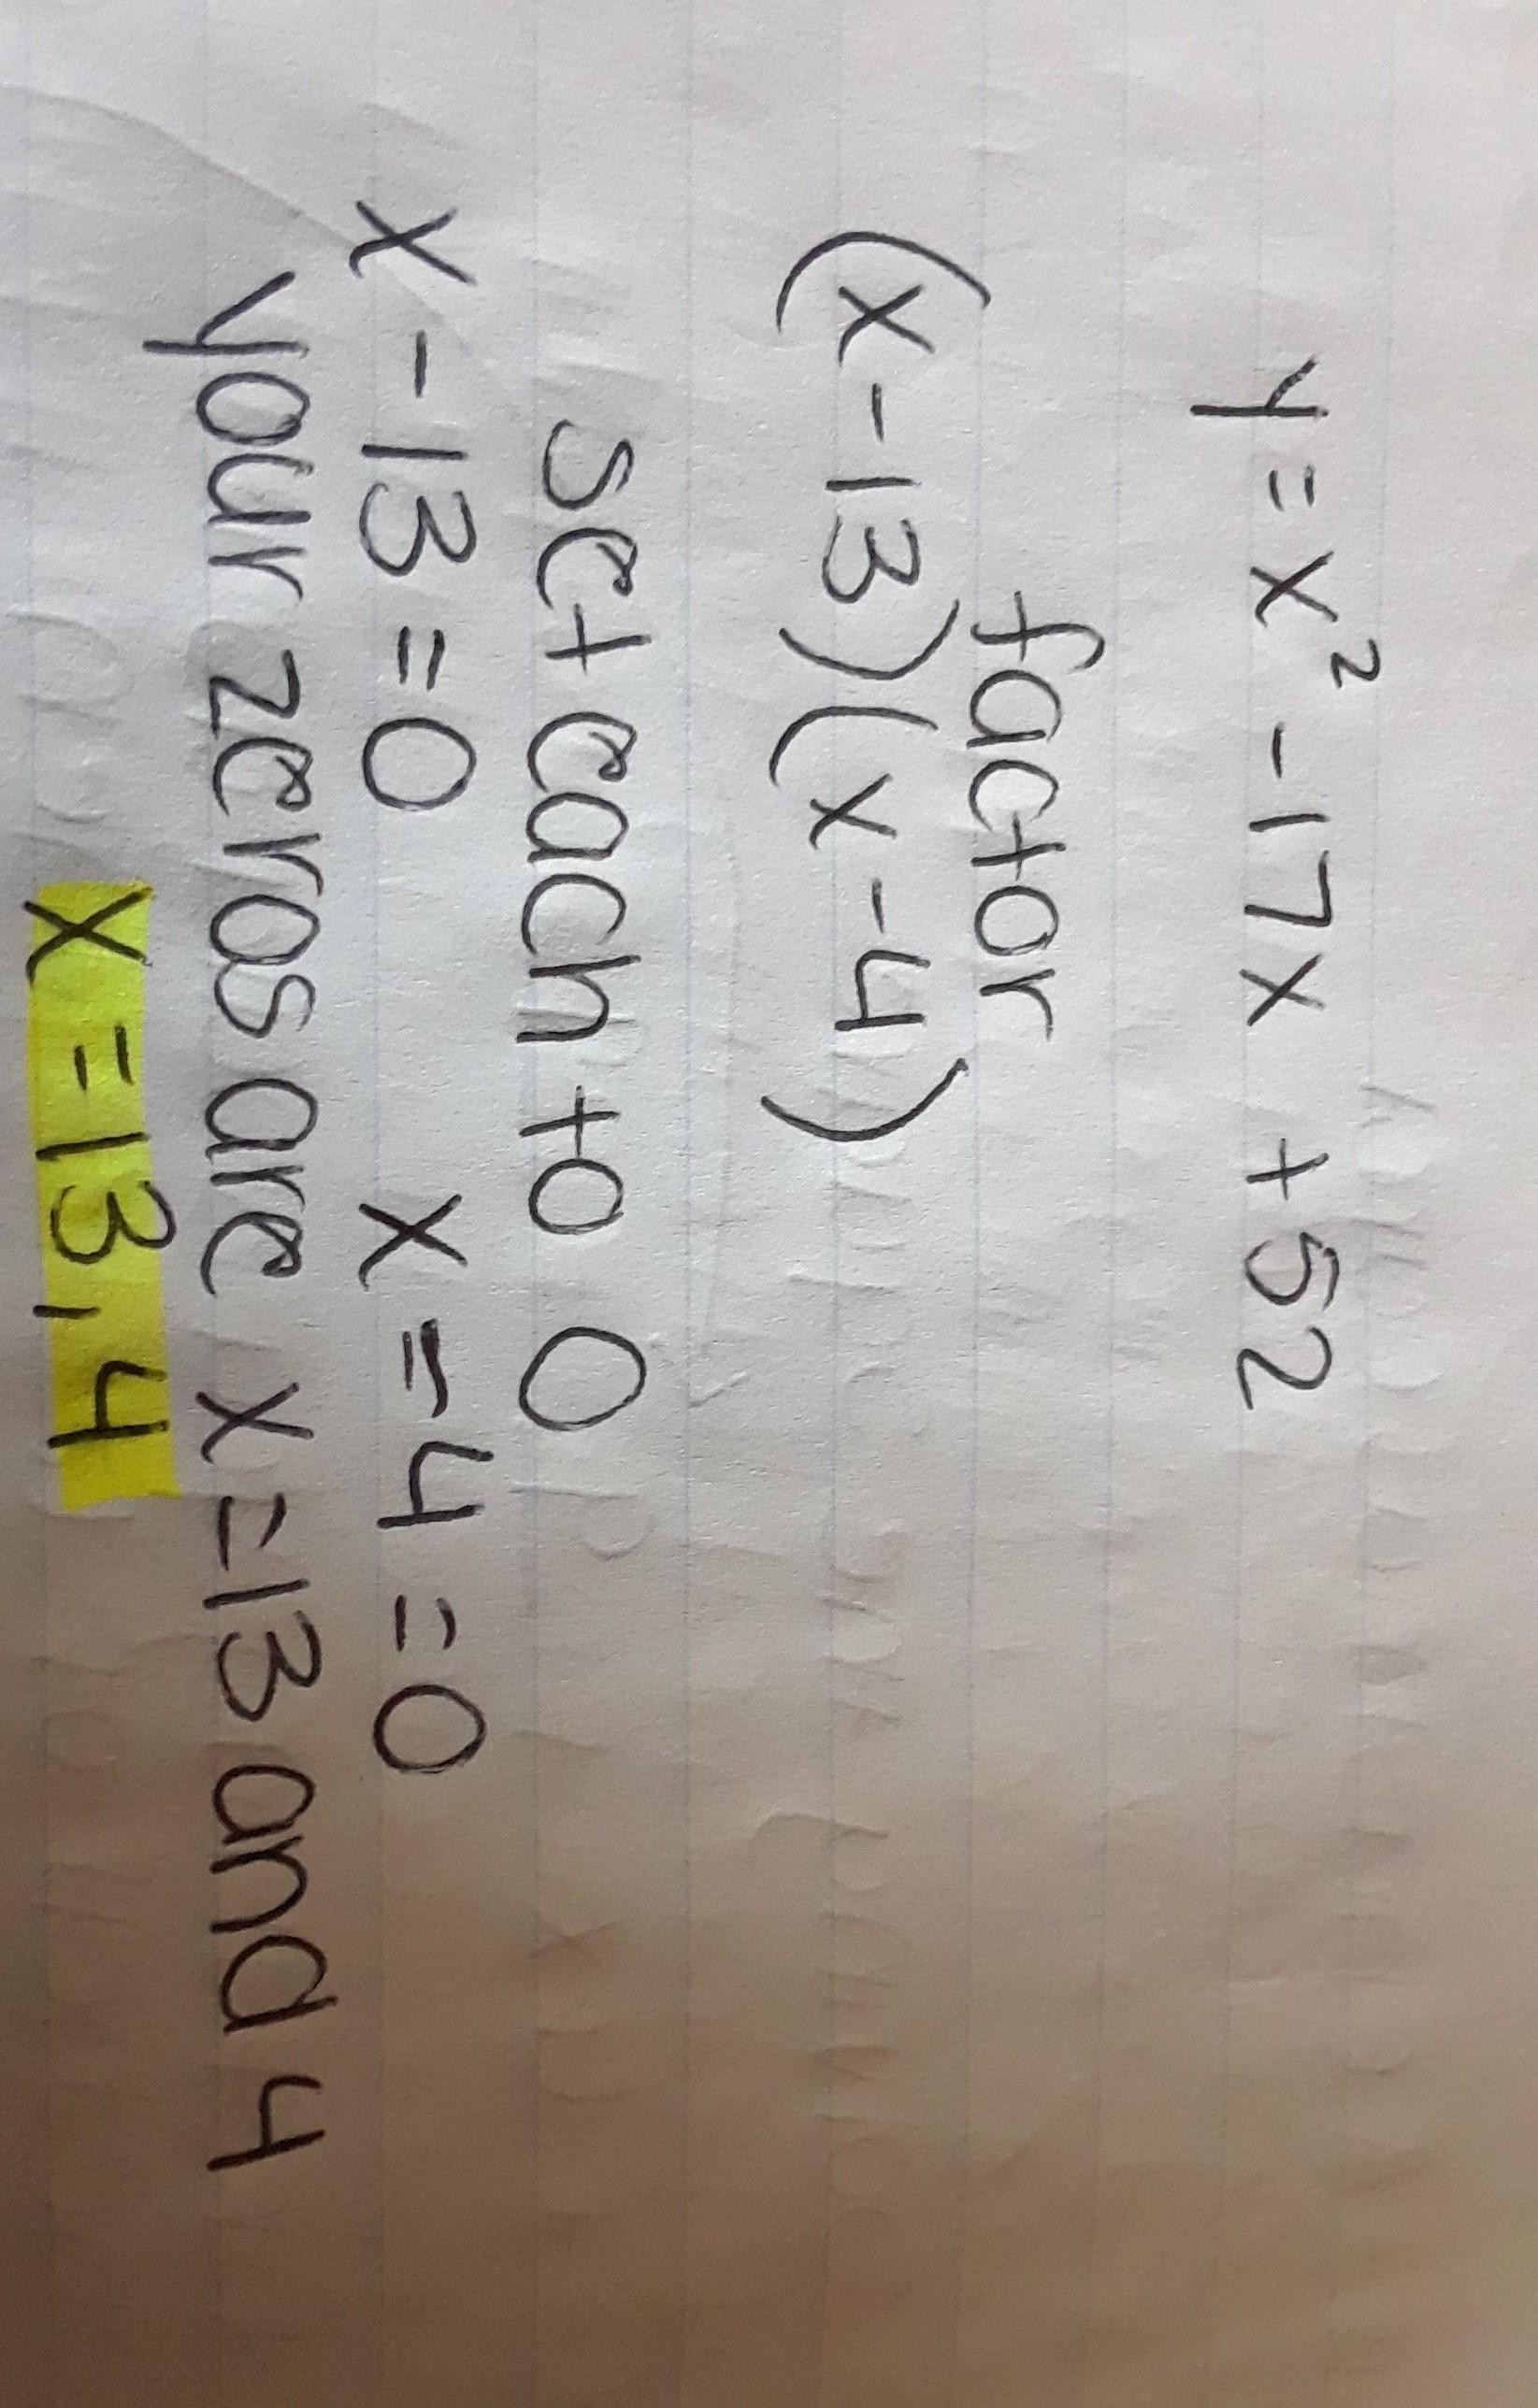 y = x² - 17x + 52
factor
(x - 13)(x - 4)
set each to 0
x - 13 = 0 x = 4 = 0
your zeros are x = 13 and 4
x = 13, 4